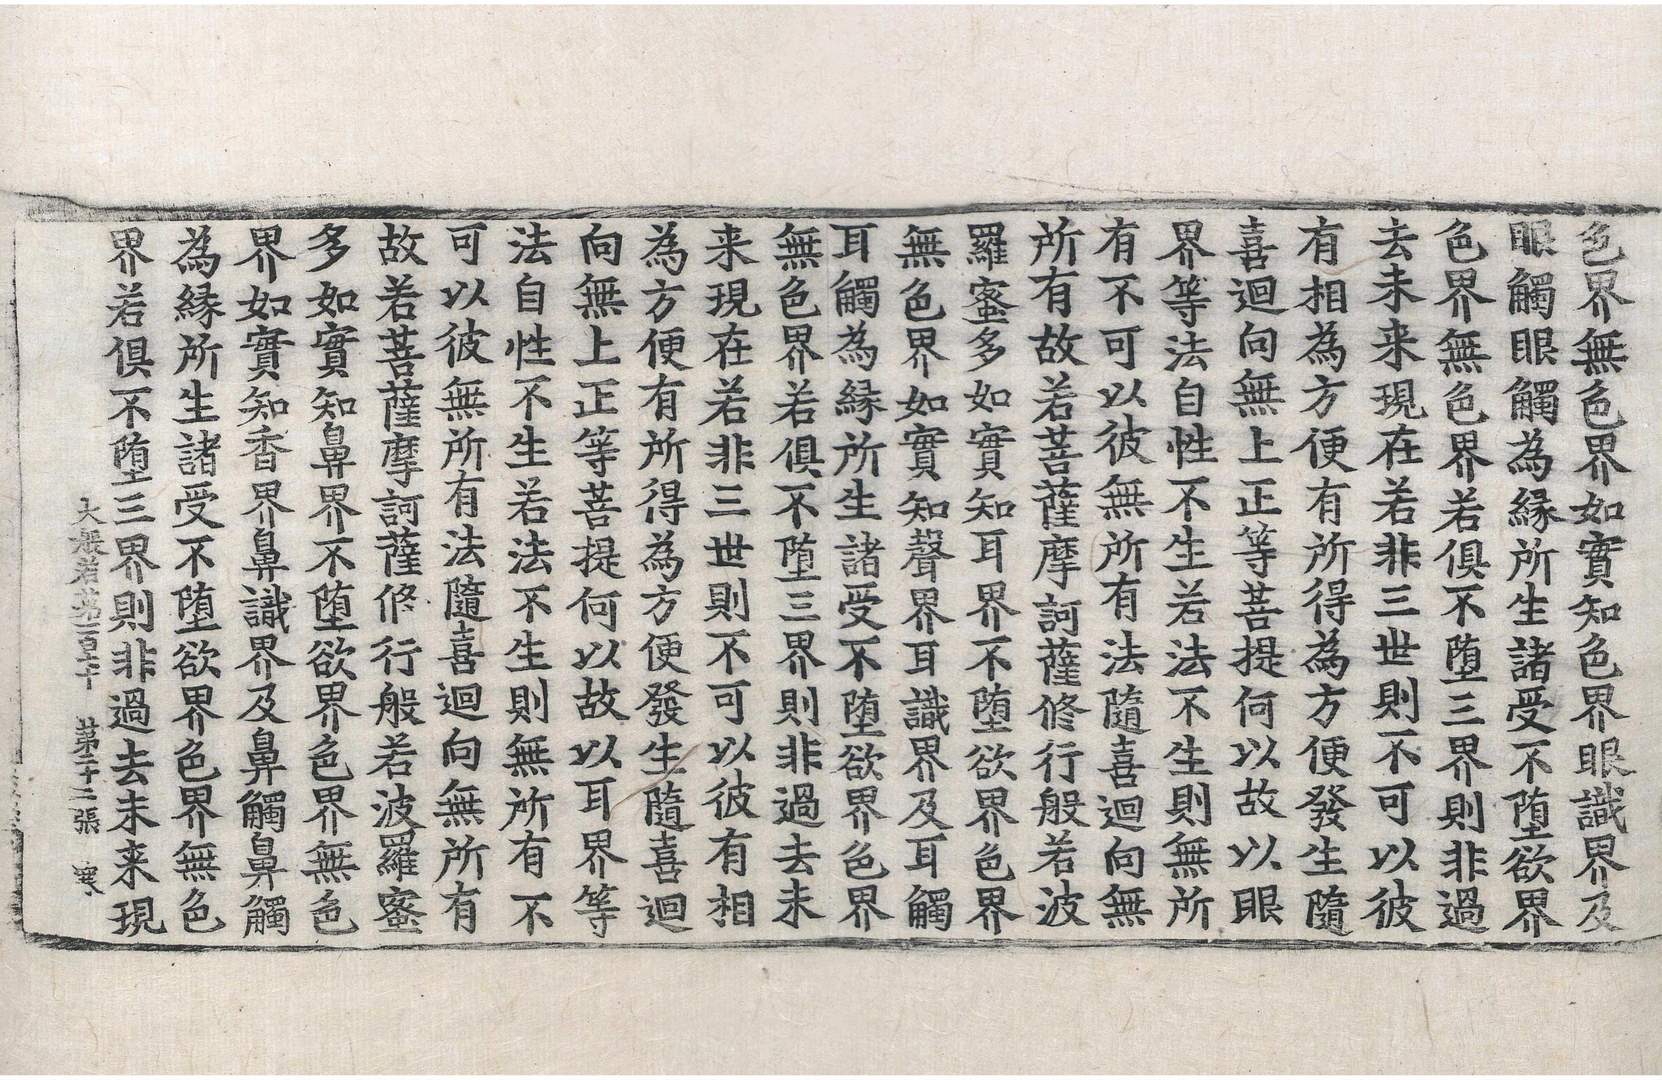 色界無色界如實知色界眼識界及
眼觸眼觸為縁所生諸受不堕欲界
色界無色界若俱不堕三界則非過
去未来現在若非三世則不可以彼
有相為方便有所得為方便發生隨
喜迴向無上正等菩提何以故以眼
界等法自性不生若法不生則無所
有不可以彼無所有法隨喜迴向無
所有故若菩薩摩訶薩修行般若波
羅蜜多如實知耳界不堕欲界色界
無色界如實知聲界耳識界及耳觸
耳觸為縁所生諸受不堕欲界色界
無色界若俱不堕三界則非過去未
来現在若非三世則不可以彼有相
為方便有所得為方便發生隨喜迴
向無上正等菩提何以故以耳界等
法自性不生若法不生則無所有不
可以彼無所有法隨喜迴向無所有
故若菩薩摩訶薩修行般若波羅蜜
多如實知鼻界不堕欲界色界無色
界如實知香界鼻識界及鼻觸鼻觸
為縁所生諸受不堕欲界色界無色
界若俱不堕三界則非過去未来現
大般若苐 苐 張 寒